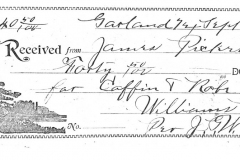 40 50/100 Garland Tex Sept
Received from James Picker
Forty 50/100 D
for Coffin & Robe
Williams
No. Per J. W.